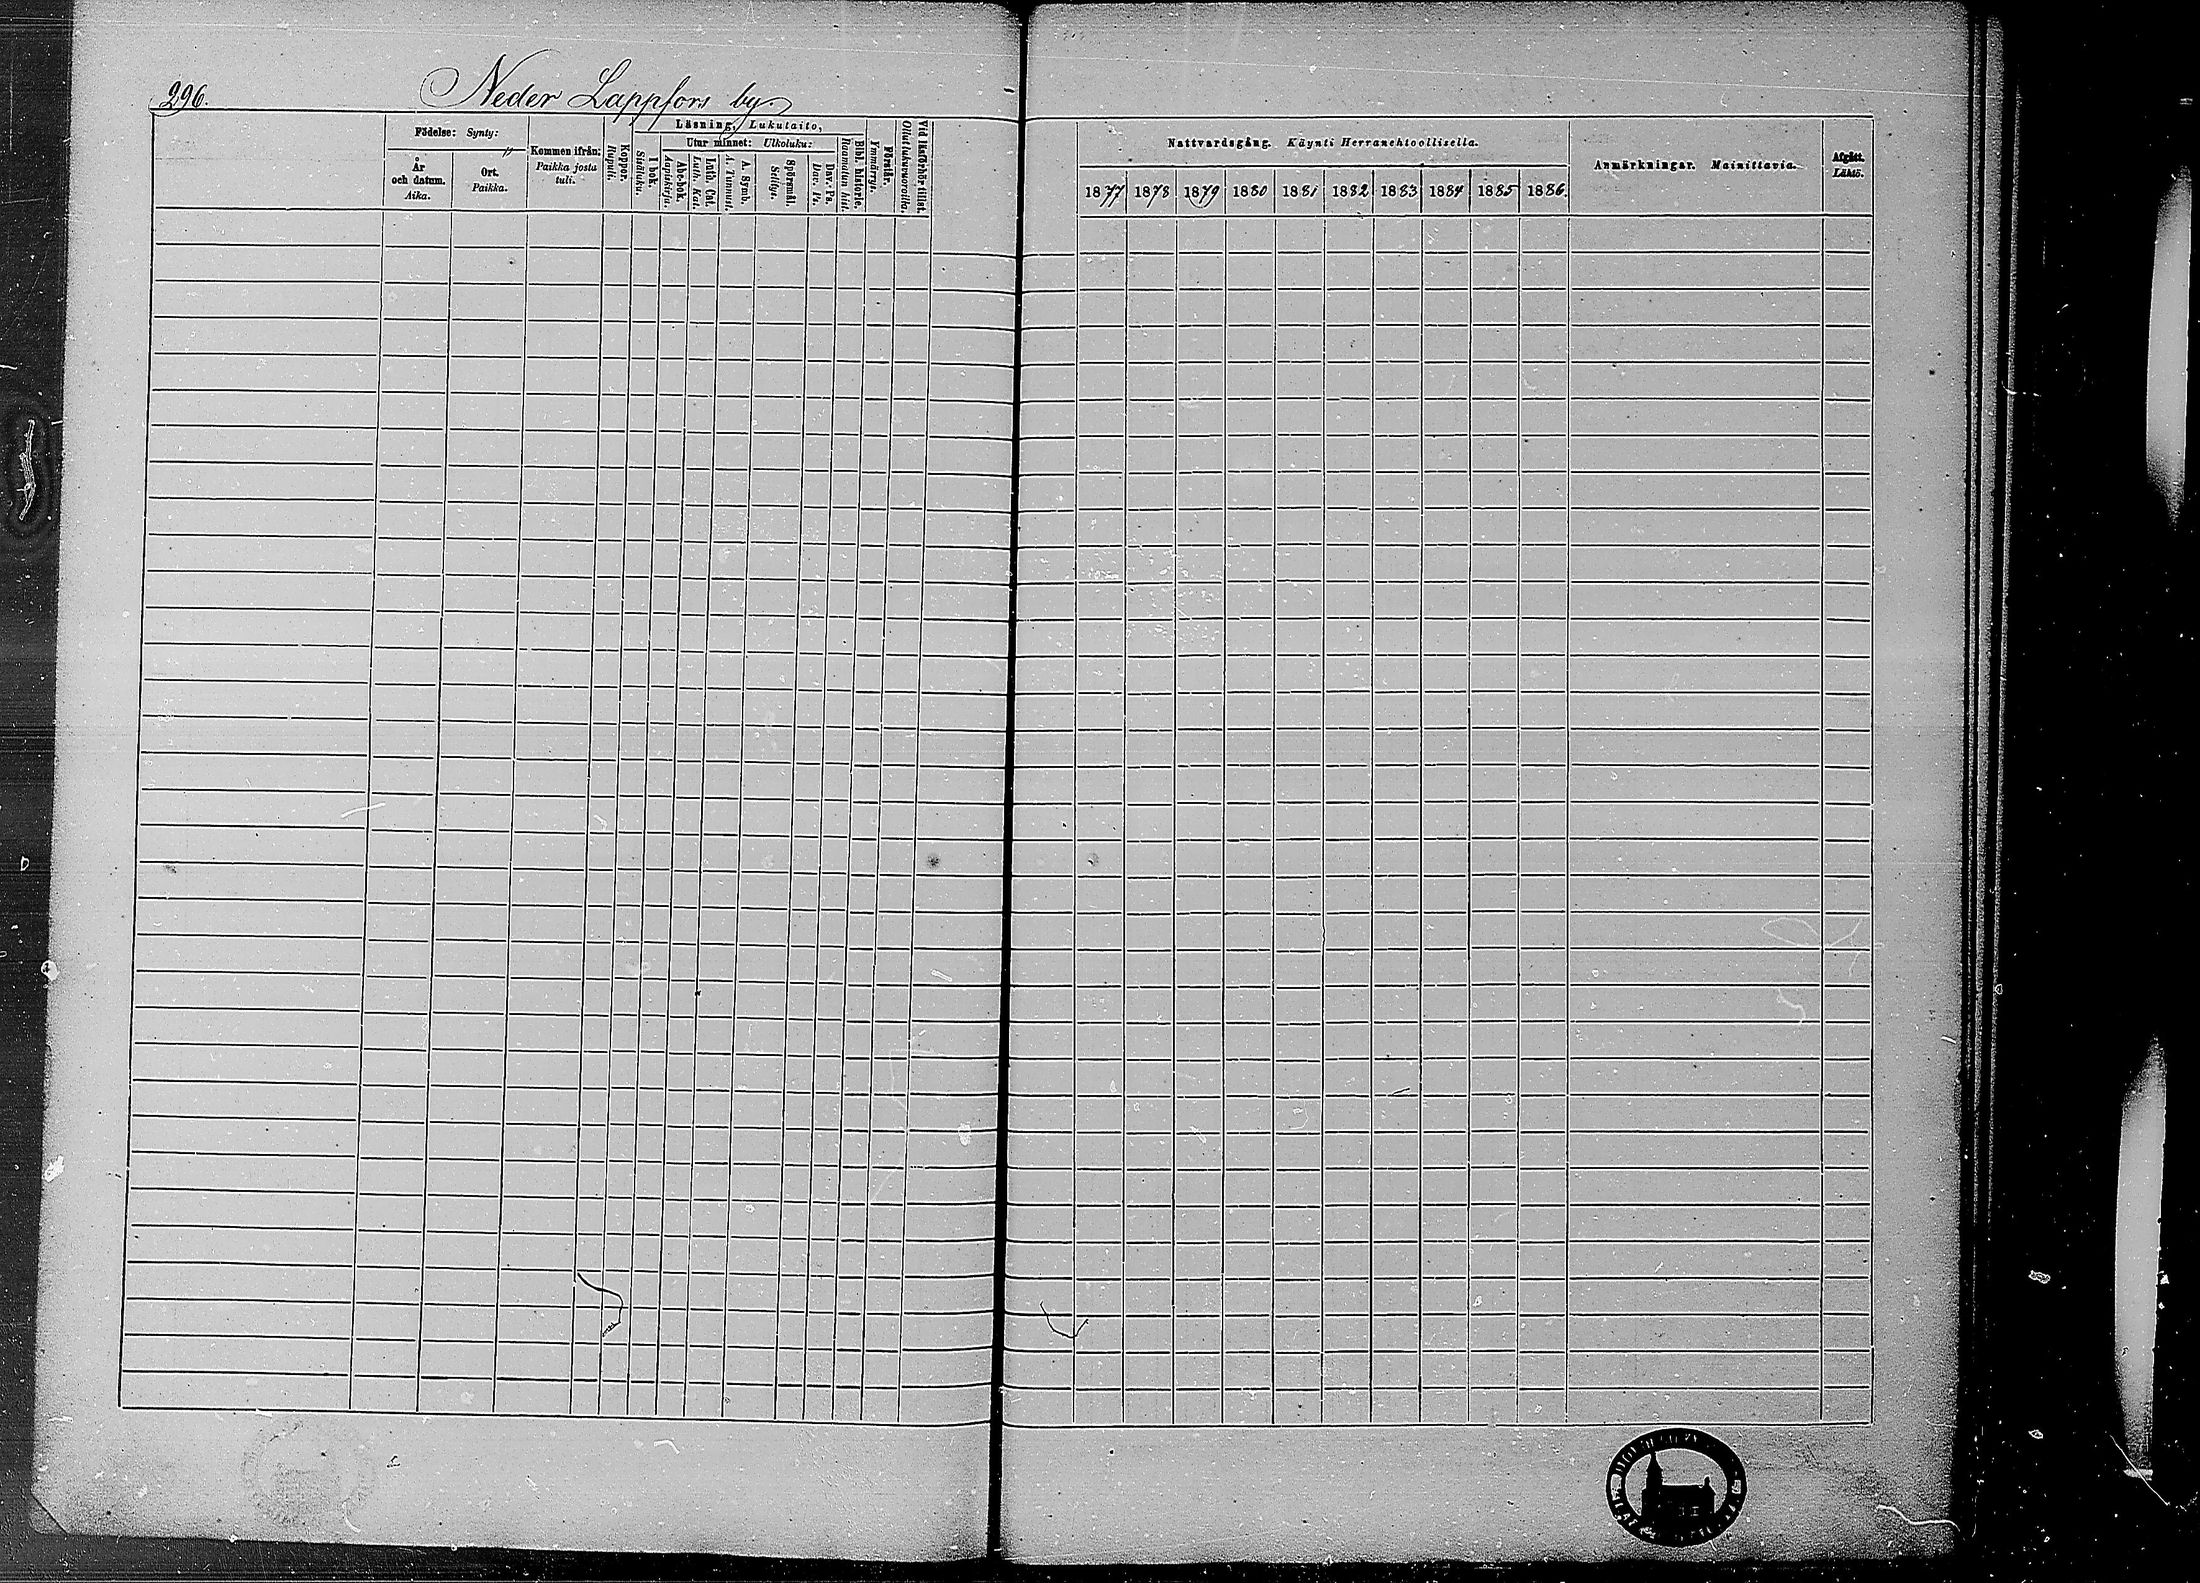 296.
Neder Lappfors by.
Födelse: Synty:
År och datum. Aika.
Ort. Paikka.
Kommen ifrån: Paikka josta tuli.
Koppor. Rupuli.
Läsning, Lukutaito,
I bok. Sisäluku.
Utur minnet: Ulkoluku:
Abc-bok. Aapiskirja.
Luth. Cat. Luth. Kat.
A. Symb. A. Tunnust.
Spörsmål. Selitys.
Dav. Ps. Dav. Ps.
Bibl. historie. Raamatun hist.
Förstår. Ymmärrys.
Vid läsförhör tillst. Ollut lukuvuoroilla.
Nattvardsgång. Käynti Herranehtoollisella.
1877 1878 1879 1880 1881 1882 1883 1884 1885 1886.
Anmärkningar. Mainittavia.
Afgått. Lähtö.